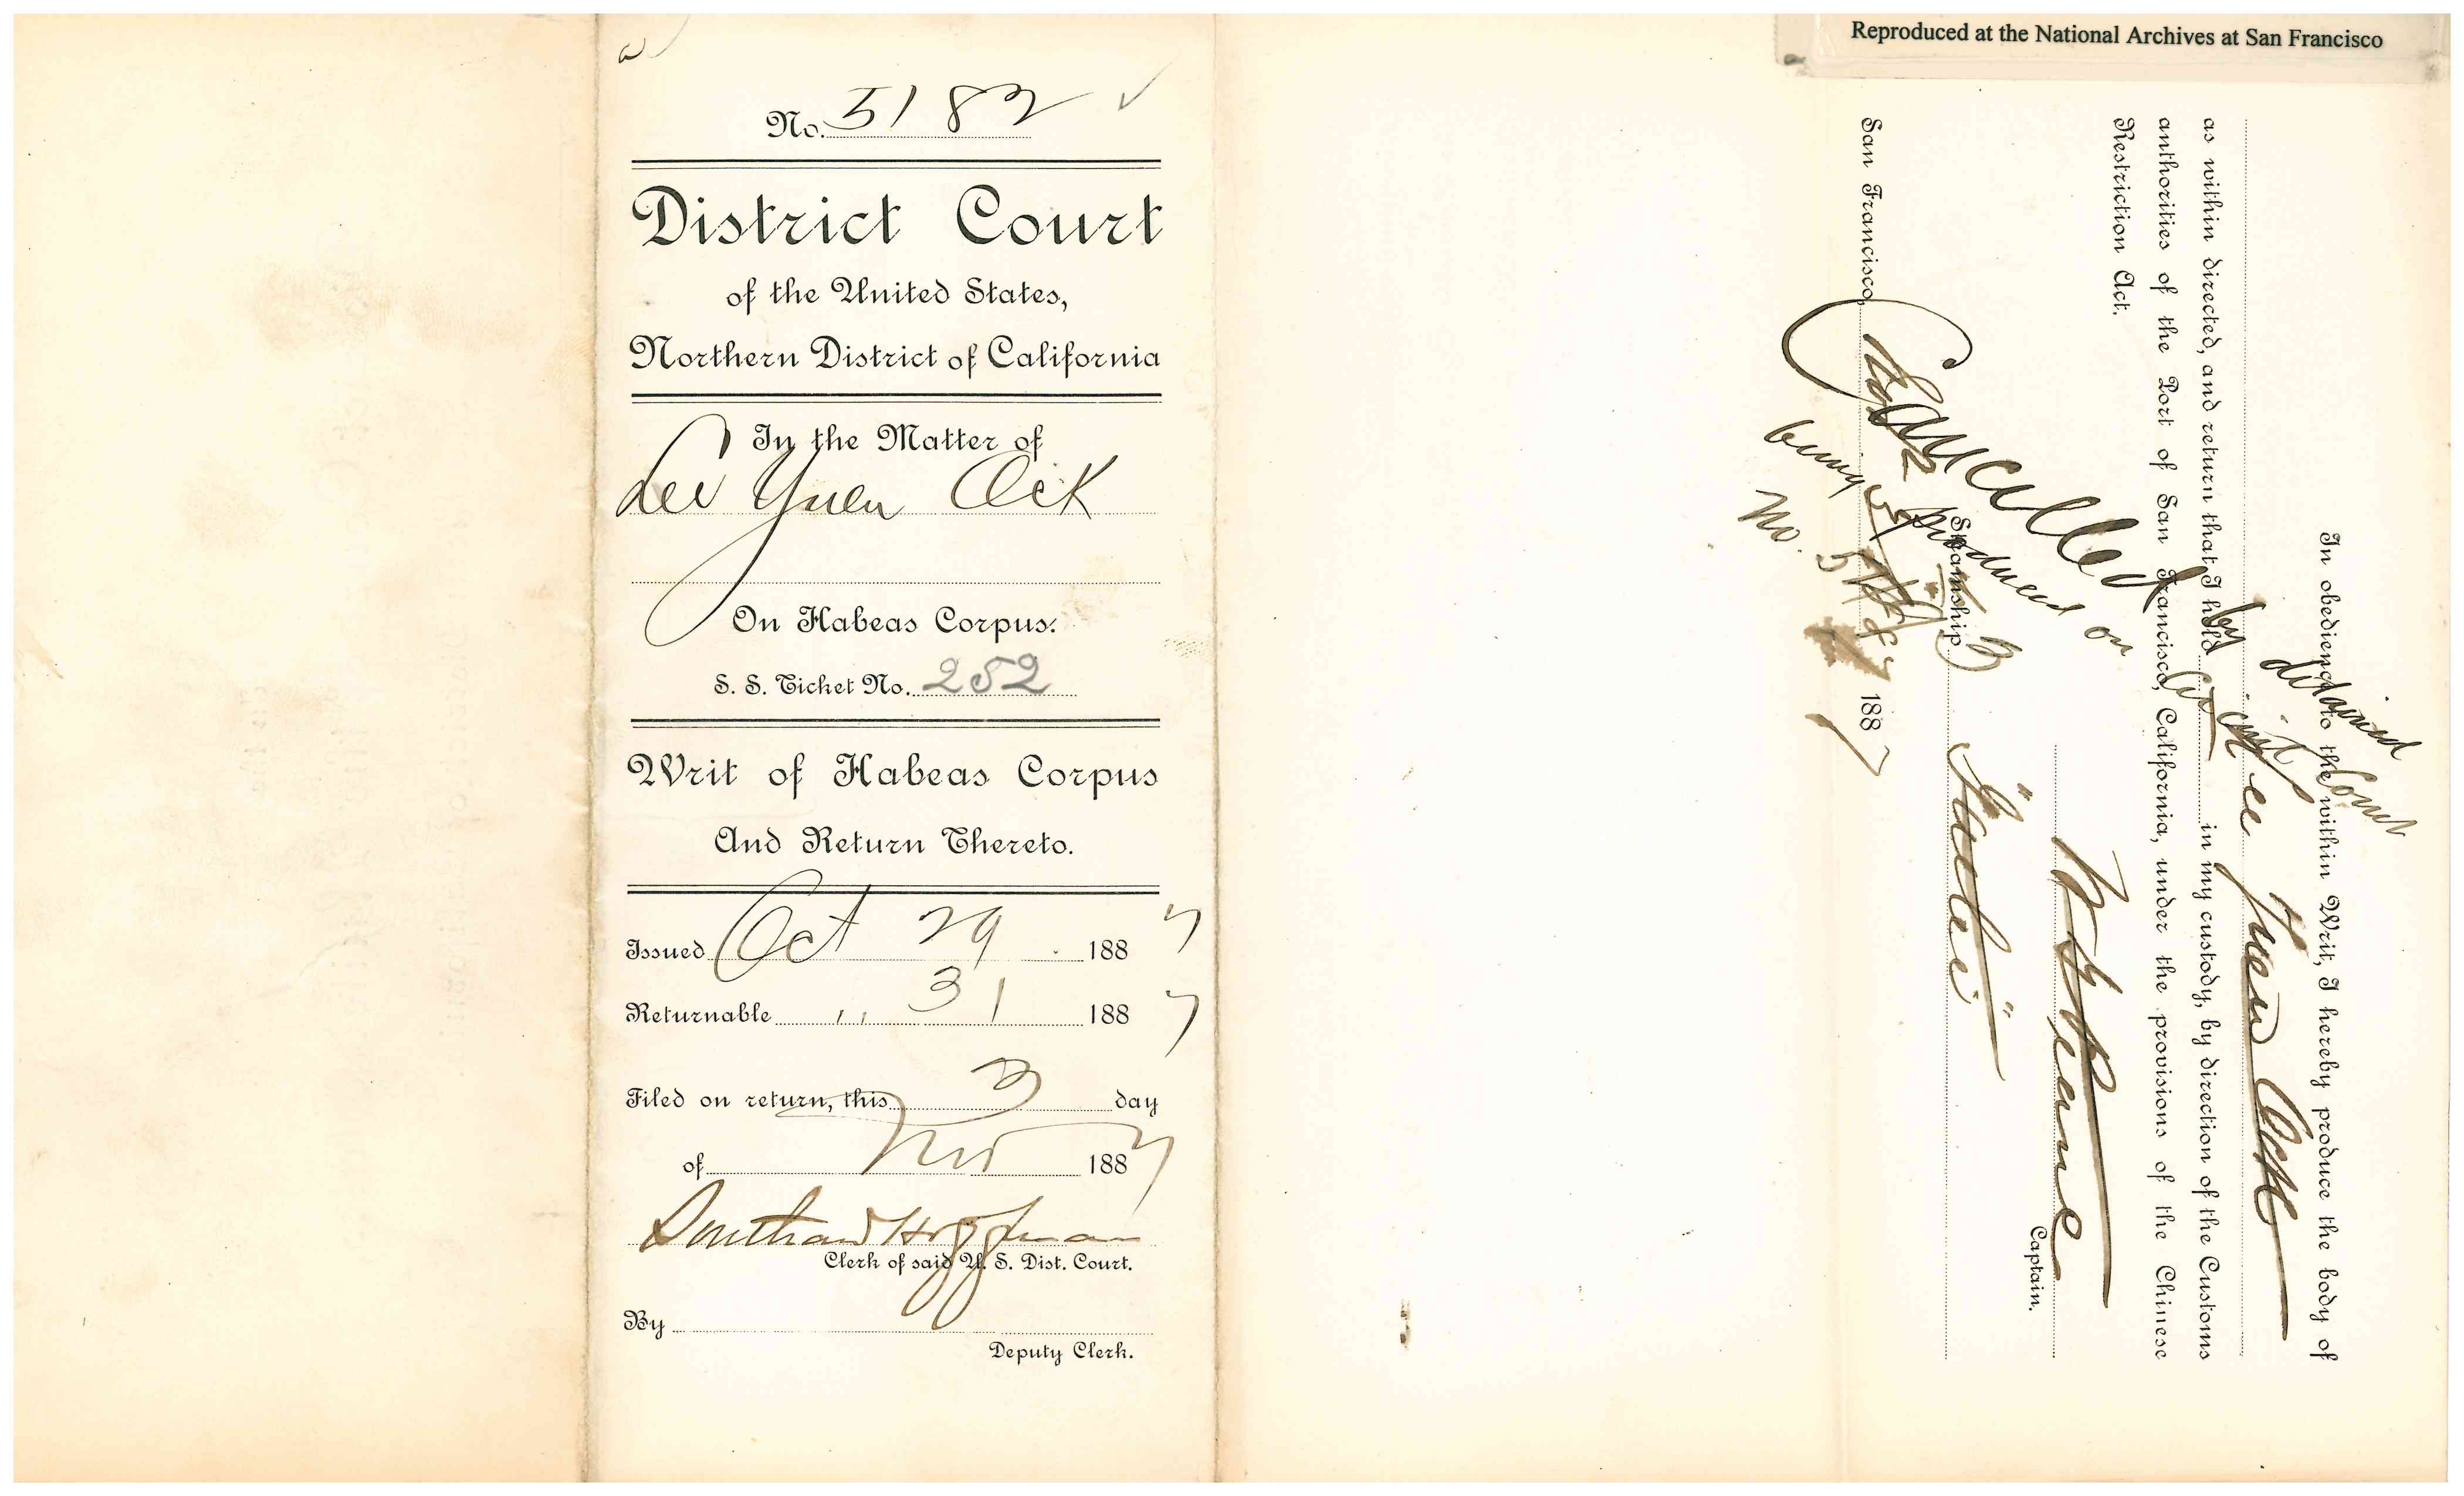 Reproduced at the National Archives at San Francisco
No. 5182
District Court
of the United States,
Northern District of California
In the Matter of
Lee Yuen Ock
On Habeas Corpus.
S. S. Ticket No. 252
Writ of Habeas Corpus
And Return Thereto.
Issued Oct 29 1887
Returnable " 31 1887
Filed on return, this 3 day
of Nov 1887
Southard Hoffman
Clerk of said U. S. Dist. Court.
By
Deputy Clerk.
In obedience to the within Writ, I hereby produce the body of
Lee Yuen Ock
as within directed, and return that I hold in my custody, by direction of the Customs
authorities of the Port of San Francisco, California, under the provisions of the Chinese
Restriction Act.
Captain.
Steamship "Gaelic"
San Francisco, 1887
Cancelled by
detained
being produced on
No.
Court